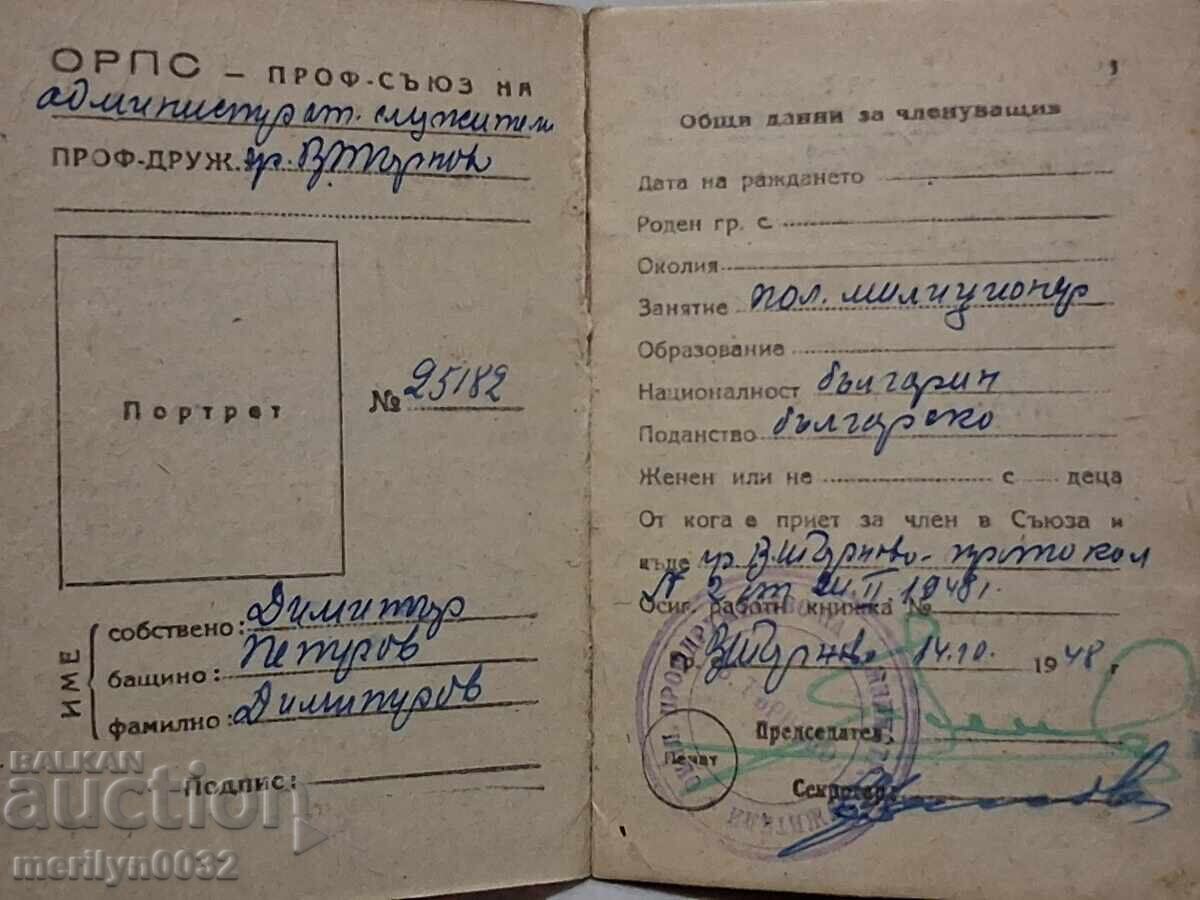 ОРПС – ПРОФ-СЪЮЗ НА
административ. служители
ПРОФ-ДРУЖ. гр. В Търново
Портрет
№ 25182
ИМЕ
собствено: Димитър
бащино: Петров
фамилно: Димитров
Подпис:
Общи данни за членуващия
Дата на раждането
Роден гр. с.
Околия
Занятие пол. милиционер
Образование
Националност българин
Поданство българско
Женен или не с деца
От кога е приет за член в Съюза и
къде гр. В. Търново - протокол
№ 2 от II. 1948 г.
Осиг. работн книжка №
В Търново 14.10. 1948 г
Председател:
Печат
Секретар:
BALKAN
auction
merilyn0032